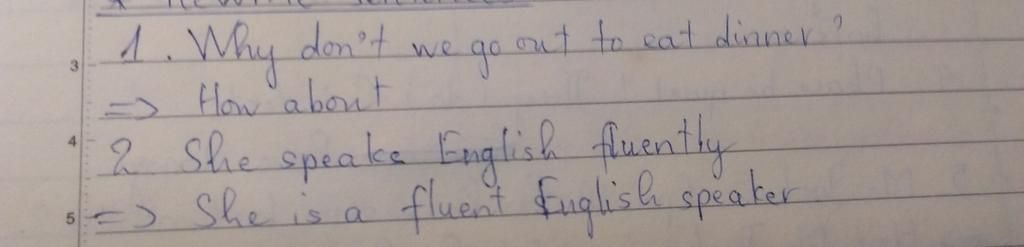 * Rewrite sentences
3 1. Why don't we go out to eat dinner?
=> How about
4 2 She speaks English fluently
5 => She is a fluent English speaker